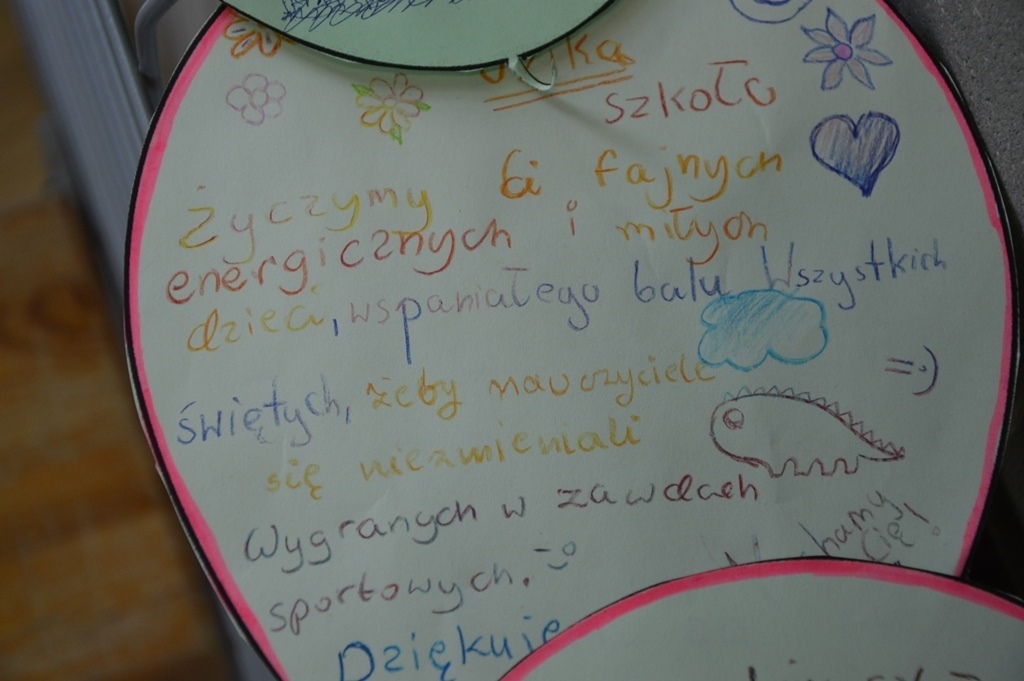 szkoło
Życzymy Ci fajnych
energicznych i miłych
dzieci, wspaniałego balu Wszystkich
świętych, żeby nauczyciele
się niezmieniali
=:)
Wygranych w zawdach
sportowych. :-)
Cię!
Dziękuje